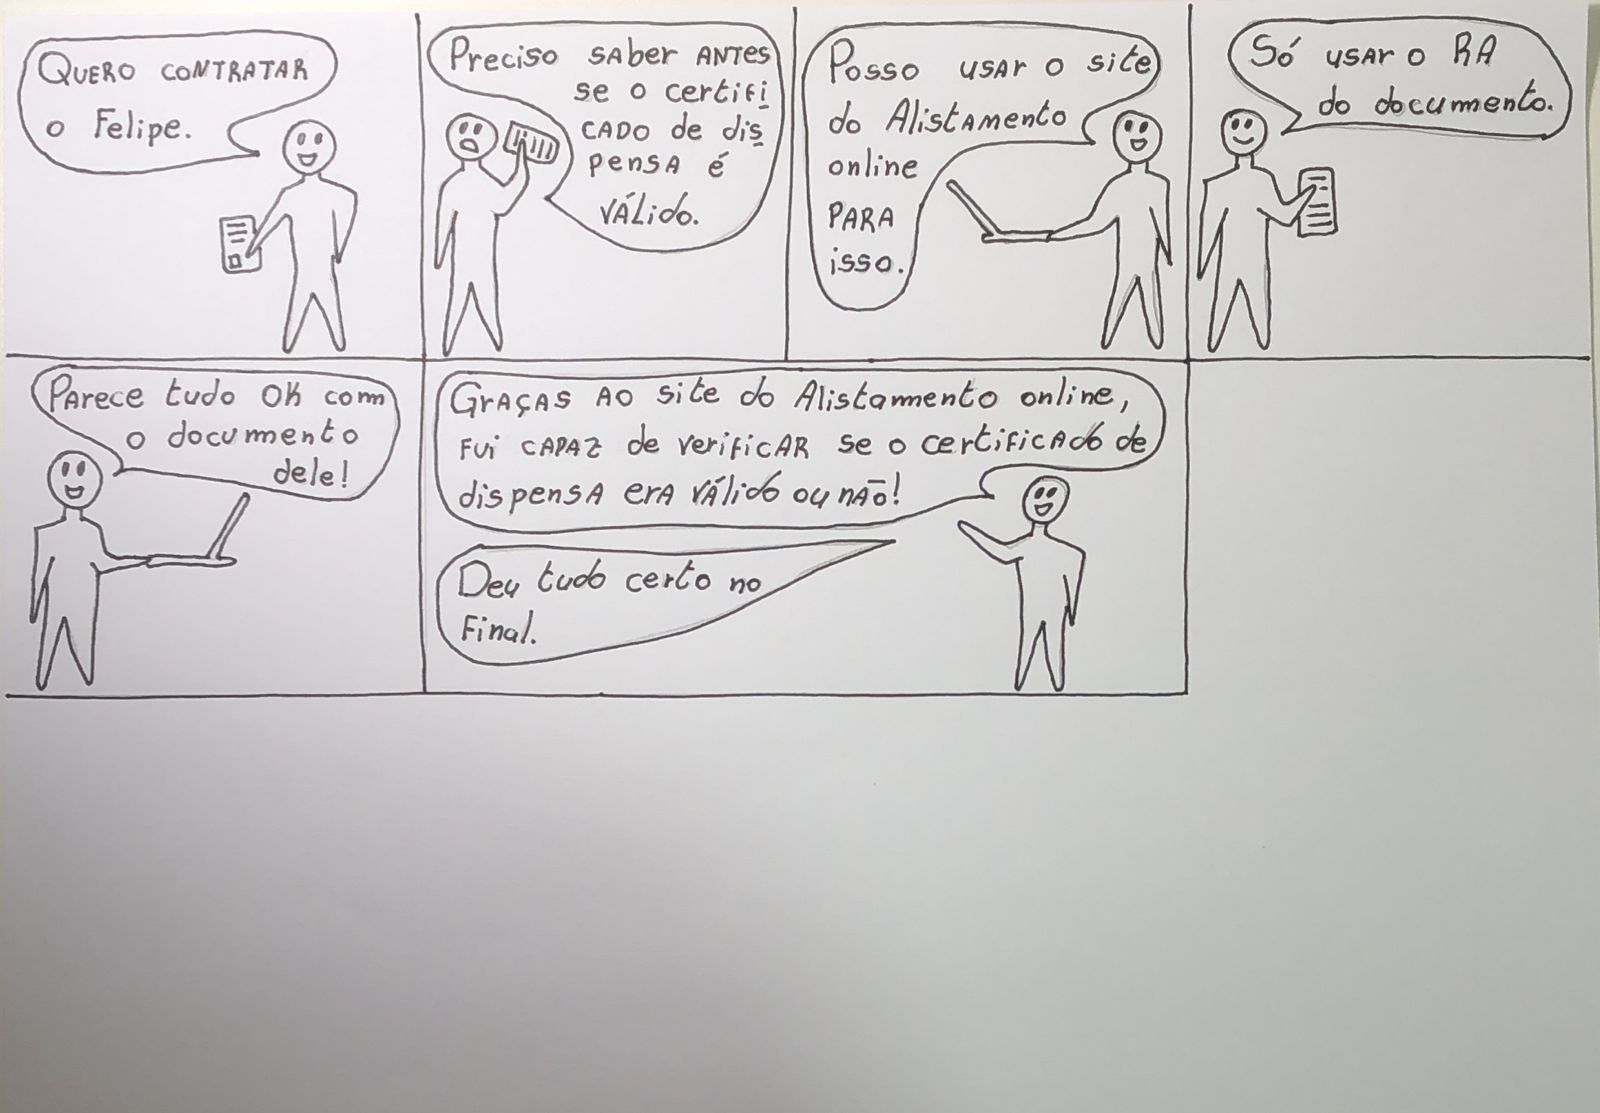 QUERO CONTRATAR
o Felipe.
Preciso sAber ANTES
se o certifi
CADO de dis
pensA é
VÁLido.
Posso usAr o site
do AlistAmento
online
PARA
isso.
Só usAr o RA
do documento.
PArece tudo OK com
o documento
dele!
GrAçAS AO site do AlistAmento online,
Fui CAPAZ de veriFicAR se o certiFicAdo de
dispensA erA VÁlido ou não!
Deu tudo certo no
Final.